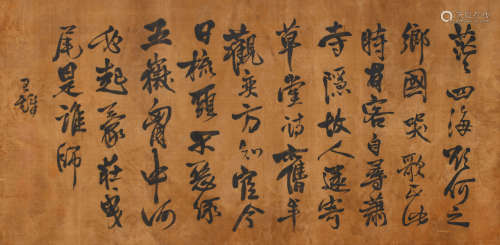 茫茫四海欲何之
鄉國哭歌正此
時有客自尋蕭
寺隱故人遙寄
草堂詩舊年
觀奕方知宦今
日梳頭不爲絲
五嶽胸中河
起蒙莊曳
尾是誰師
王鐸